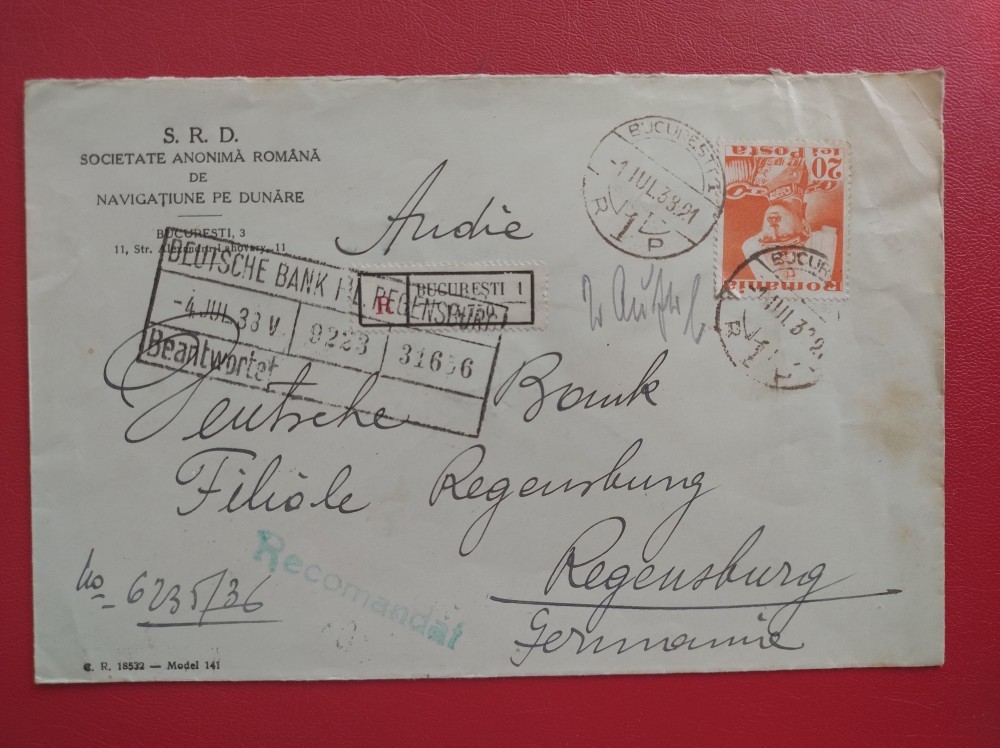 S. R. D.
SOCIETATE ANONIMĂ ROMÂNĂ
DE
NAVIGAȚIUNE PE DUNĂRE
BUCUREȘTI, 3
11, Str. Alexandru Lahovary, 11
BUCUREȘTI 1
-1 IUL. 38. 21
R 1 P
20 lei Posta
Romania
BUCUR
R 1 P
DEUTSCHE BANK FIL. REGENSBURG
-4. JUL. 38 V.
9223
Beantwortet
R
BUCUREȘTI 1
Deutsche Bank
Filiale Regensburg
Regensburg
Germanie
No 6235/36
Recomandat
C. R. 18532 — Model 141